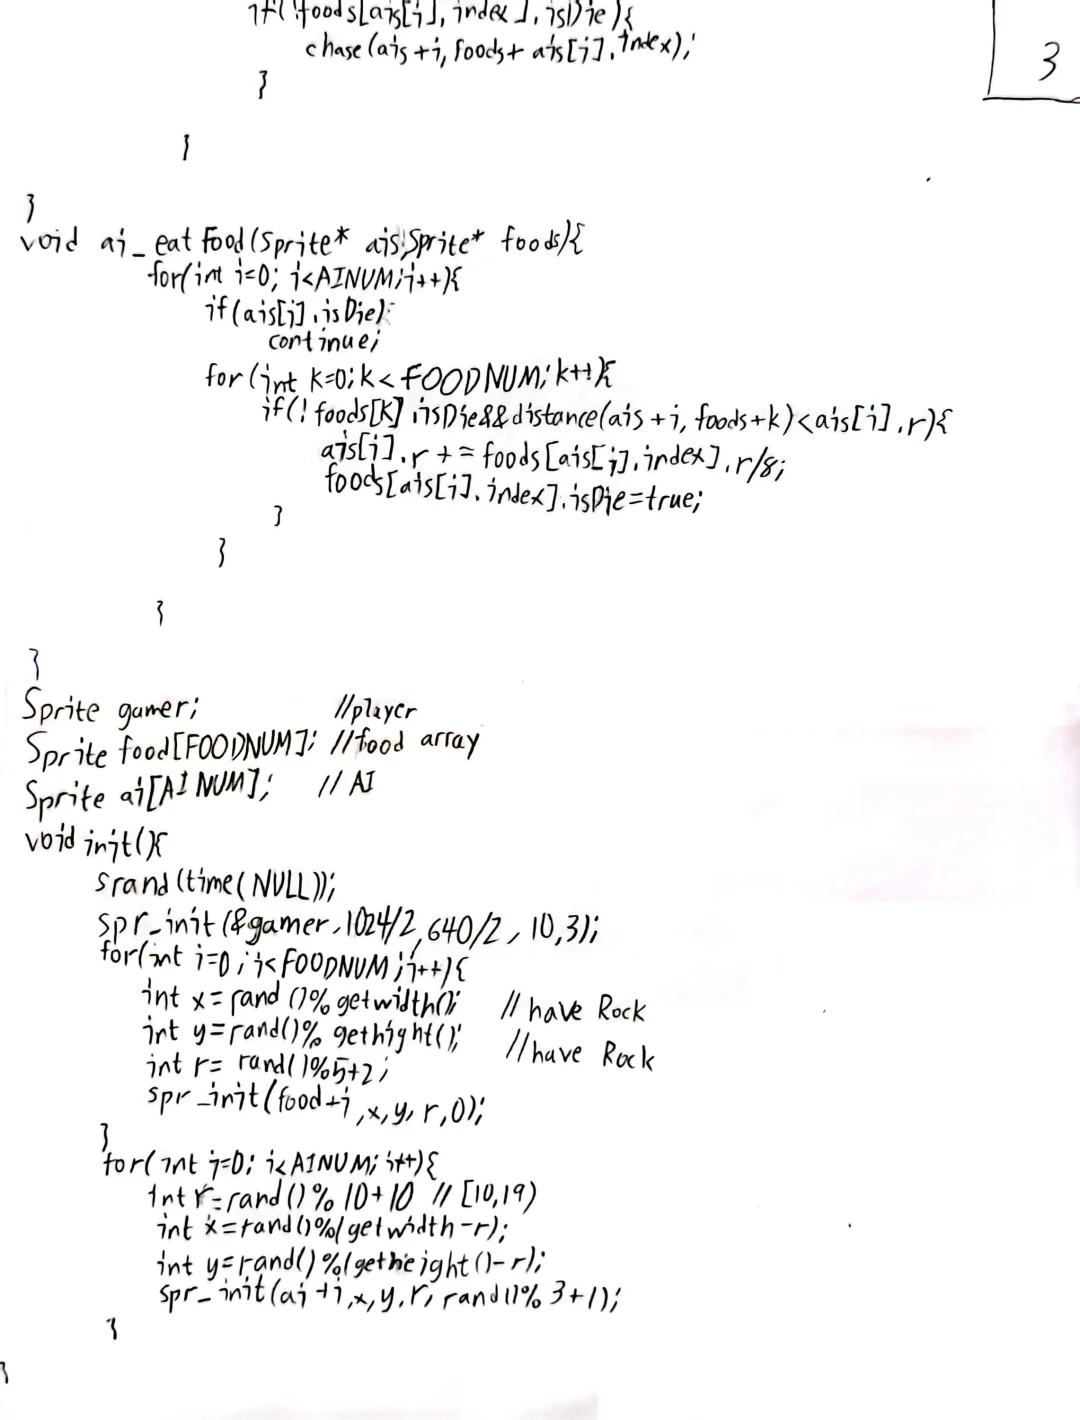 if(!foods[ais[i].index].isDie){
chase(ais+i,foods+ais[i].index);
}
3
}
}
void ai_eatFood(Sprite* ais,Sprite* foods){
for(int i=0; i<AINUM;i++){
if(ais[i].isDie)
continue;
for(int k=0;k<FOODNUM;k++){
if(!foods[k].isDie&&distance(ais+i,foods+k)<ais[i].r){
ais[i].r+=foods[ais[i].index].r/8;
foods[ais[i].index].isDie=true;
}
}
}
}
Sprite gamer; //player
Sprite food[FOODNUM]; //food array
Sprite ai[AINUM]; //AI
void init(){
srand(time(NULL));
spr_init(&gamer,1024/2,640/2,10,3);
for(int i=0;i<FOODNUM;i++){
int x=rand()%getwidth(); //have Rock
int y=rand()%gethight(); //have Rock
int r=rand()%5+2;
spr_init(food+i,x,y,r,0);
}
for(int i=0; i<AINUM; i++){
int r=rand()%10+10 //[10,19)
int x=rand()%(getwidth-r);
int y=rand()%(getheight()-r);
spr_init(ai+i,x,y,r,rand()%3+1);
}
}